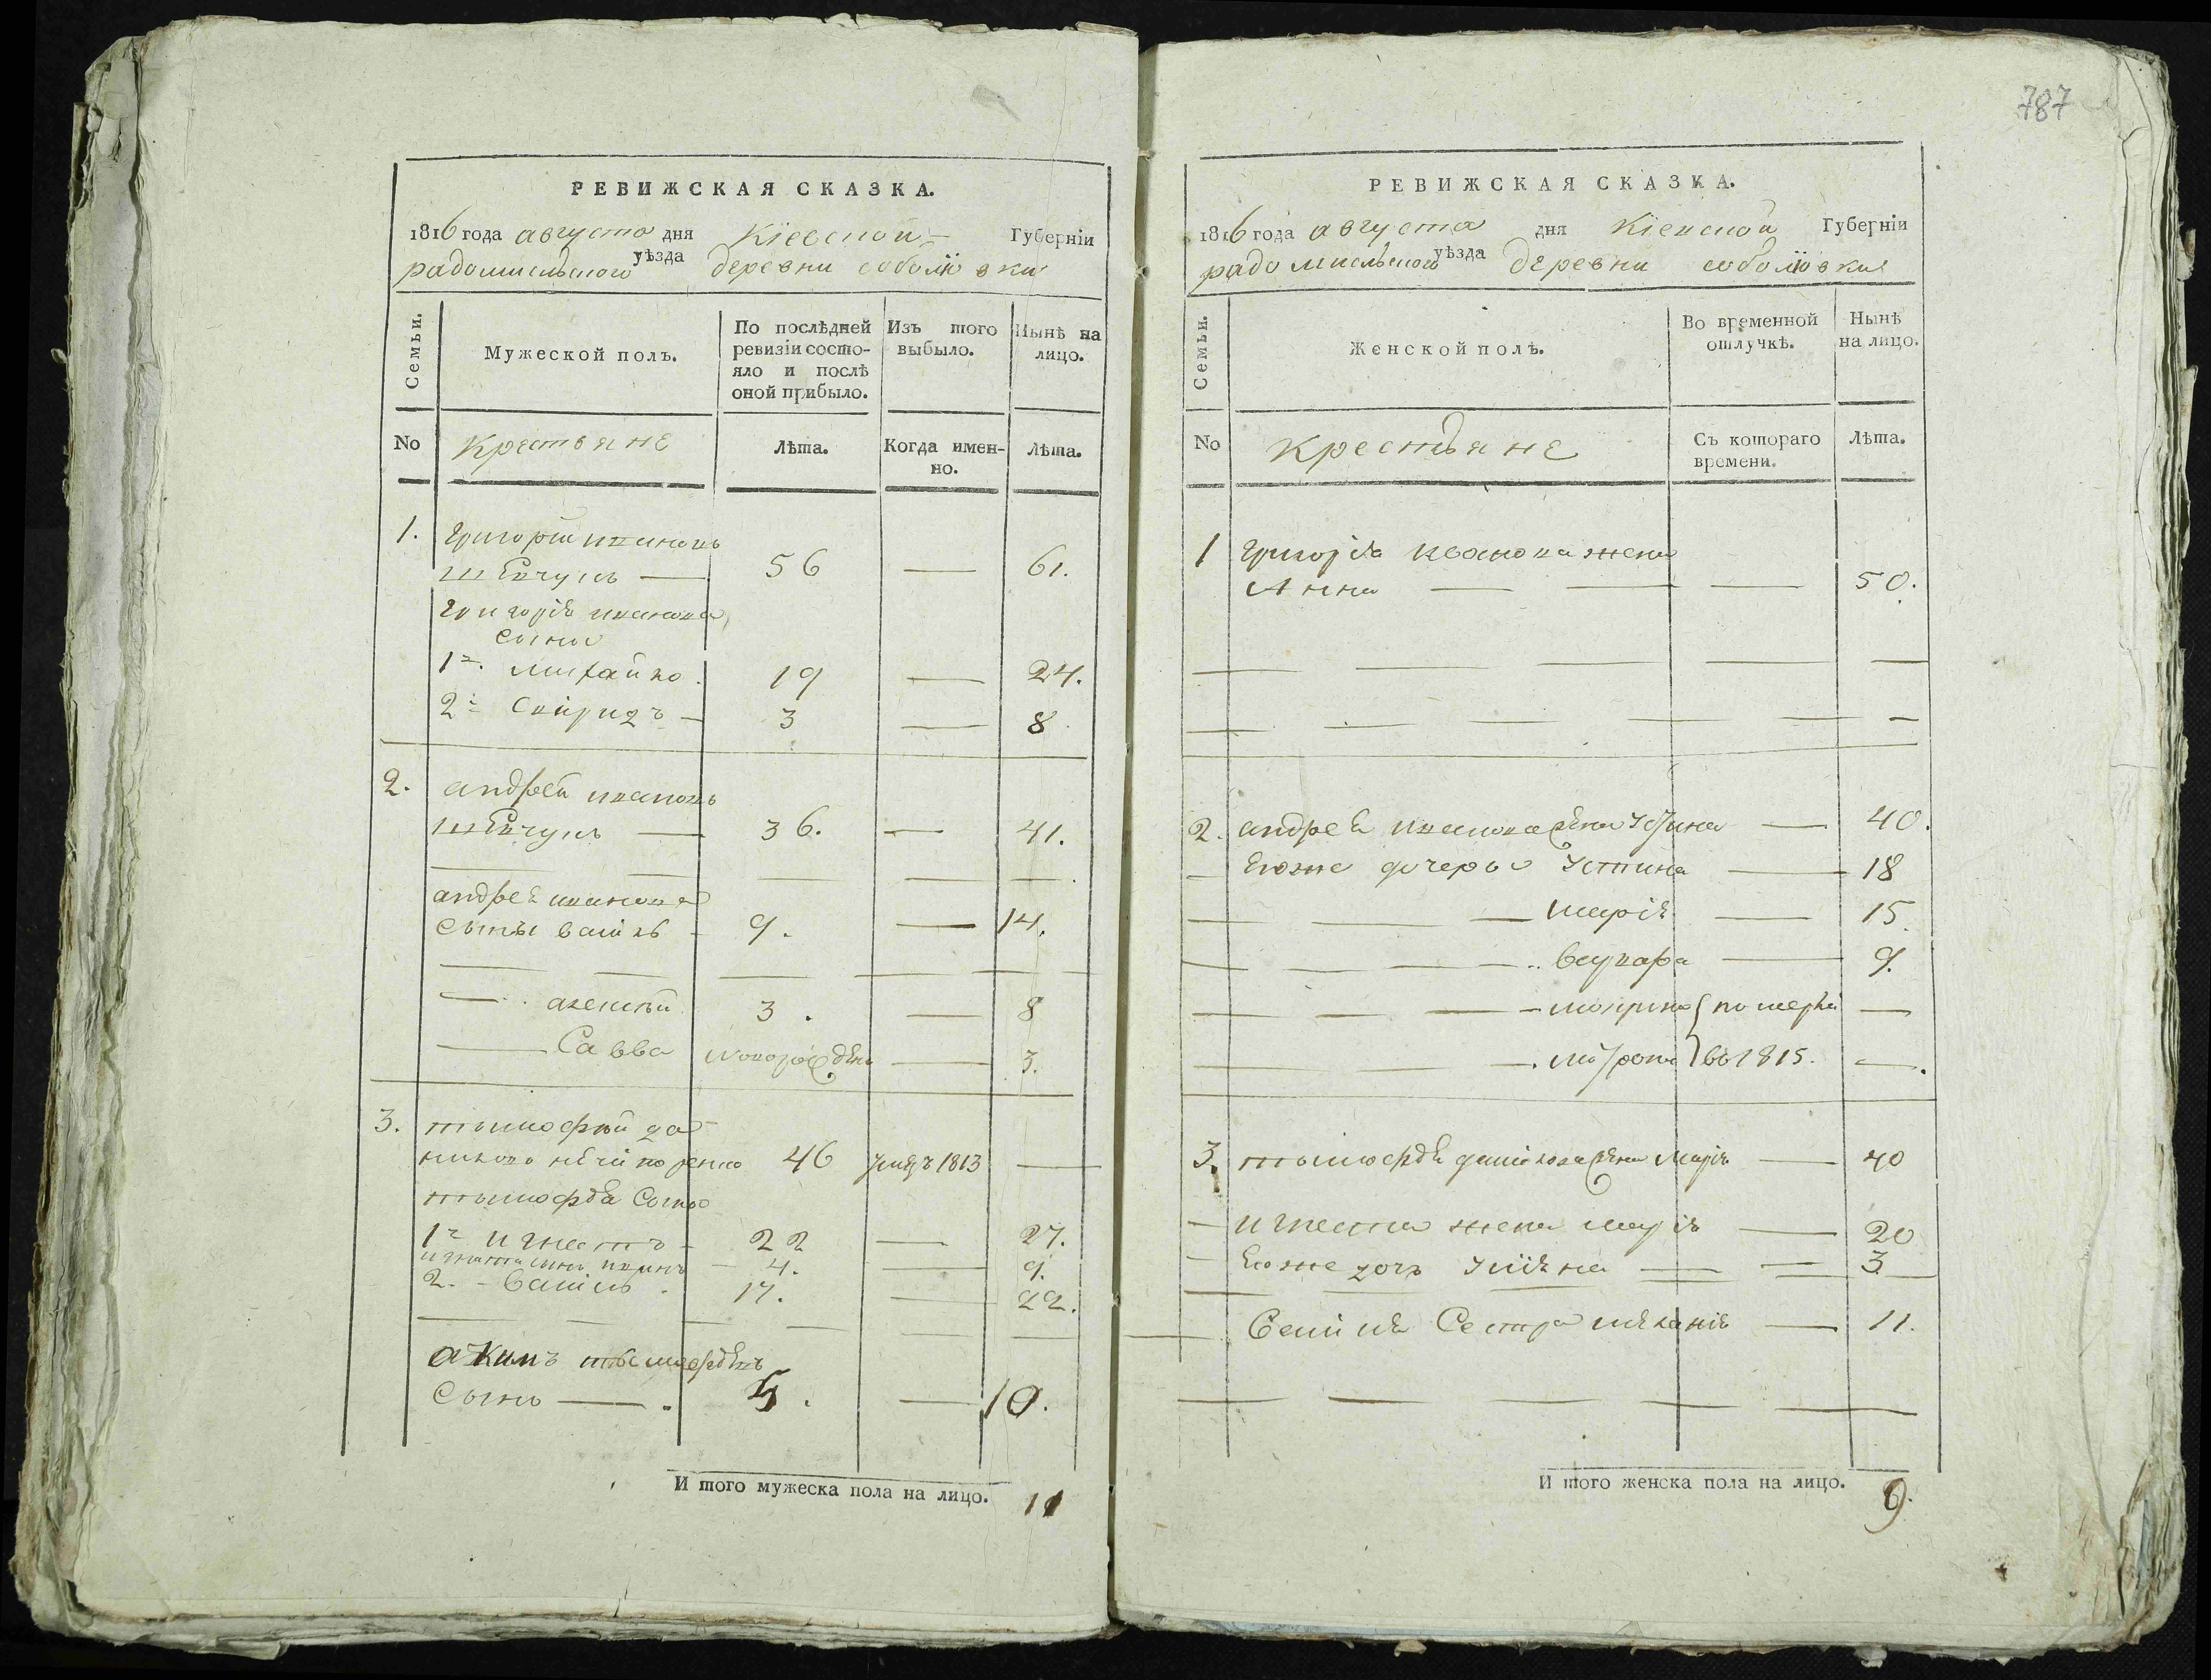 РЕВИЖСКАЯ СКАЗКА.
1816 года августа дня Кіевской Губерніи
радомысльского уѣзда деревни соболювки
Семьи.
Мужеской полъ.
По послѣдней ревизіи состояло и послѣ оной прибыло.
Изъ того выбыло.
Нынѣ на лицо.
No Крестьяне Лѣта. Когда именно. Лѣта.
1. Григорій ивановъ
шевчукъ — 56 — 61.
Григорія иванова
сыны
1й. михайко 19 — 24.
2й Спиридъ — 3 — 8
2. андрей ивановъ
шевчукъ — 36. — 41.
андрея иванова
сыны васіль - 9. — 14.
— алексѣй 3. — 8
— Савва новорожденъ — 3.
3. тимофѣй да
нилово нѣчипоренко 46 умеръ 1813 —
тимофѣя сыны
1й игнатъ - 22 — 27.
игната сынъ иванъ - 4. — 9.
2. - василь. 17. — 22.
акимъ тимофѣевъ
сынъ —. 5. — 10.
И того мужеска пола на лицо. 11
787
РЕВИЖСКАЯ СКАЗКА.
1816 года августа дня Кіевской Губерніи
радомысльского уѣзда деревни соболювки
Семьи.
Женской полъ.
Во временной отлучкѣ.
Нынѣ на лицо.
No Крестьяне Съ котораго времени. Лѣта.
1 Григорія иванова жена
Анна — — — 50.
2. андрея иванова жена — 40.
Еюже дочеры Устина — 18
— — марія — 15.
— — — 9.
— — — — { померли —
— — — . } въ 1815. —.
3. тимофѣя данілова жена марія — 40
— игната жена марія — 20
— Еюже дочь — — 3
— Василя Сестра меланія — 11.
И того женска пола на лицо. 9.